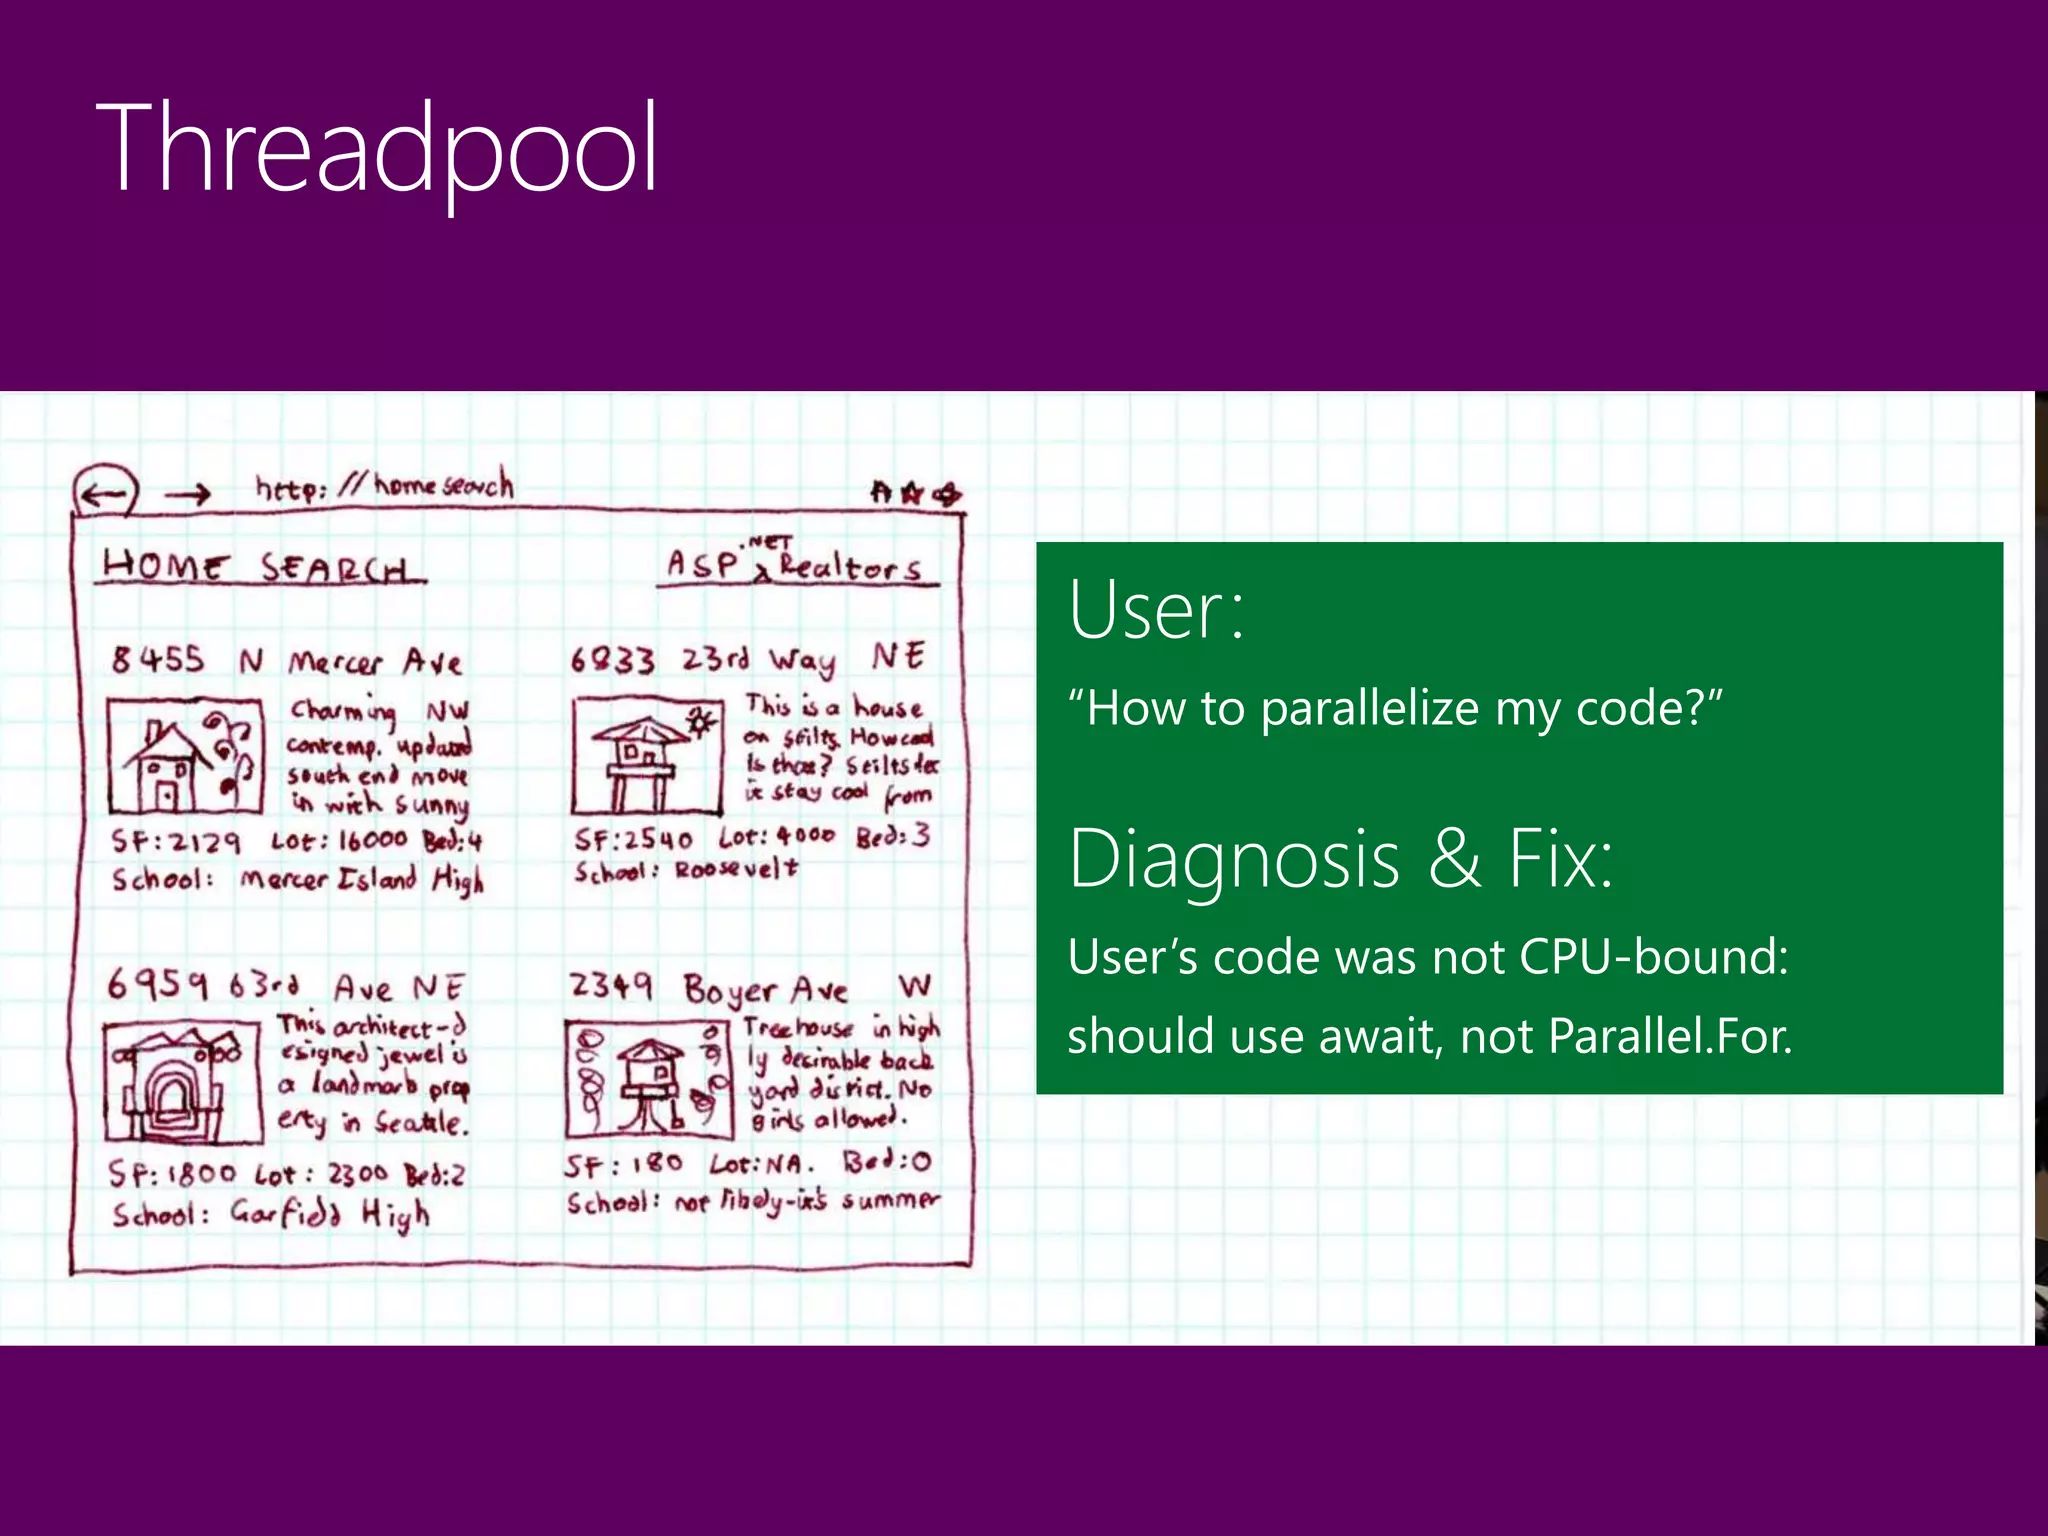 Threadpool
http://homesearch
HOME SEARCH
ASP .NET Realtors
8455 N Mercer Ave
Charming NW
contemp. updated
south end move
in with sunny
SF:2129 Lot: 16000 Bed:4
School: Mercer Island High
6833 23rd Way NE
This is a house
on stilts. How cool
is that? Stilts let
it stay cool from
SF:2540 Lot: 4000 Bed:3
School: Roosevelt
6959 63rd Ave NE
This architect-d
esigned jewel is
a landmark prop
erty in Seattle.
SF:1800 Lot: 2300 Bed:2
School: Garfield High
2349 Boyer Ave W
Treehouse in high
ly desirable back
yard district. No
girls allowed.
SF: 180 Lot:NA. Bed:0
School: not likely-it's summer
User:
“How to parallelize my code?”
Diagnosis & Fix:
User’s code was not CPU-bound:
should use await, not Parallel.For.